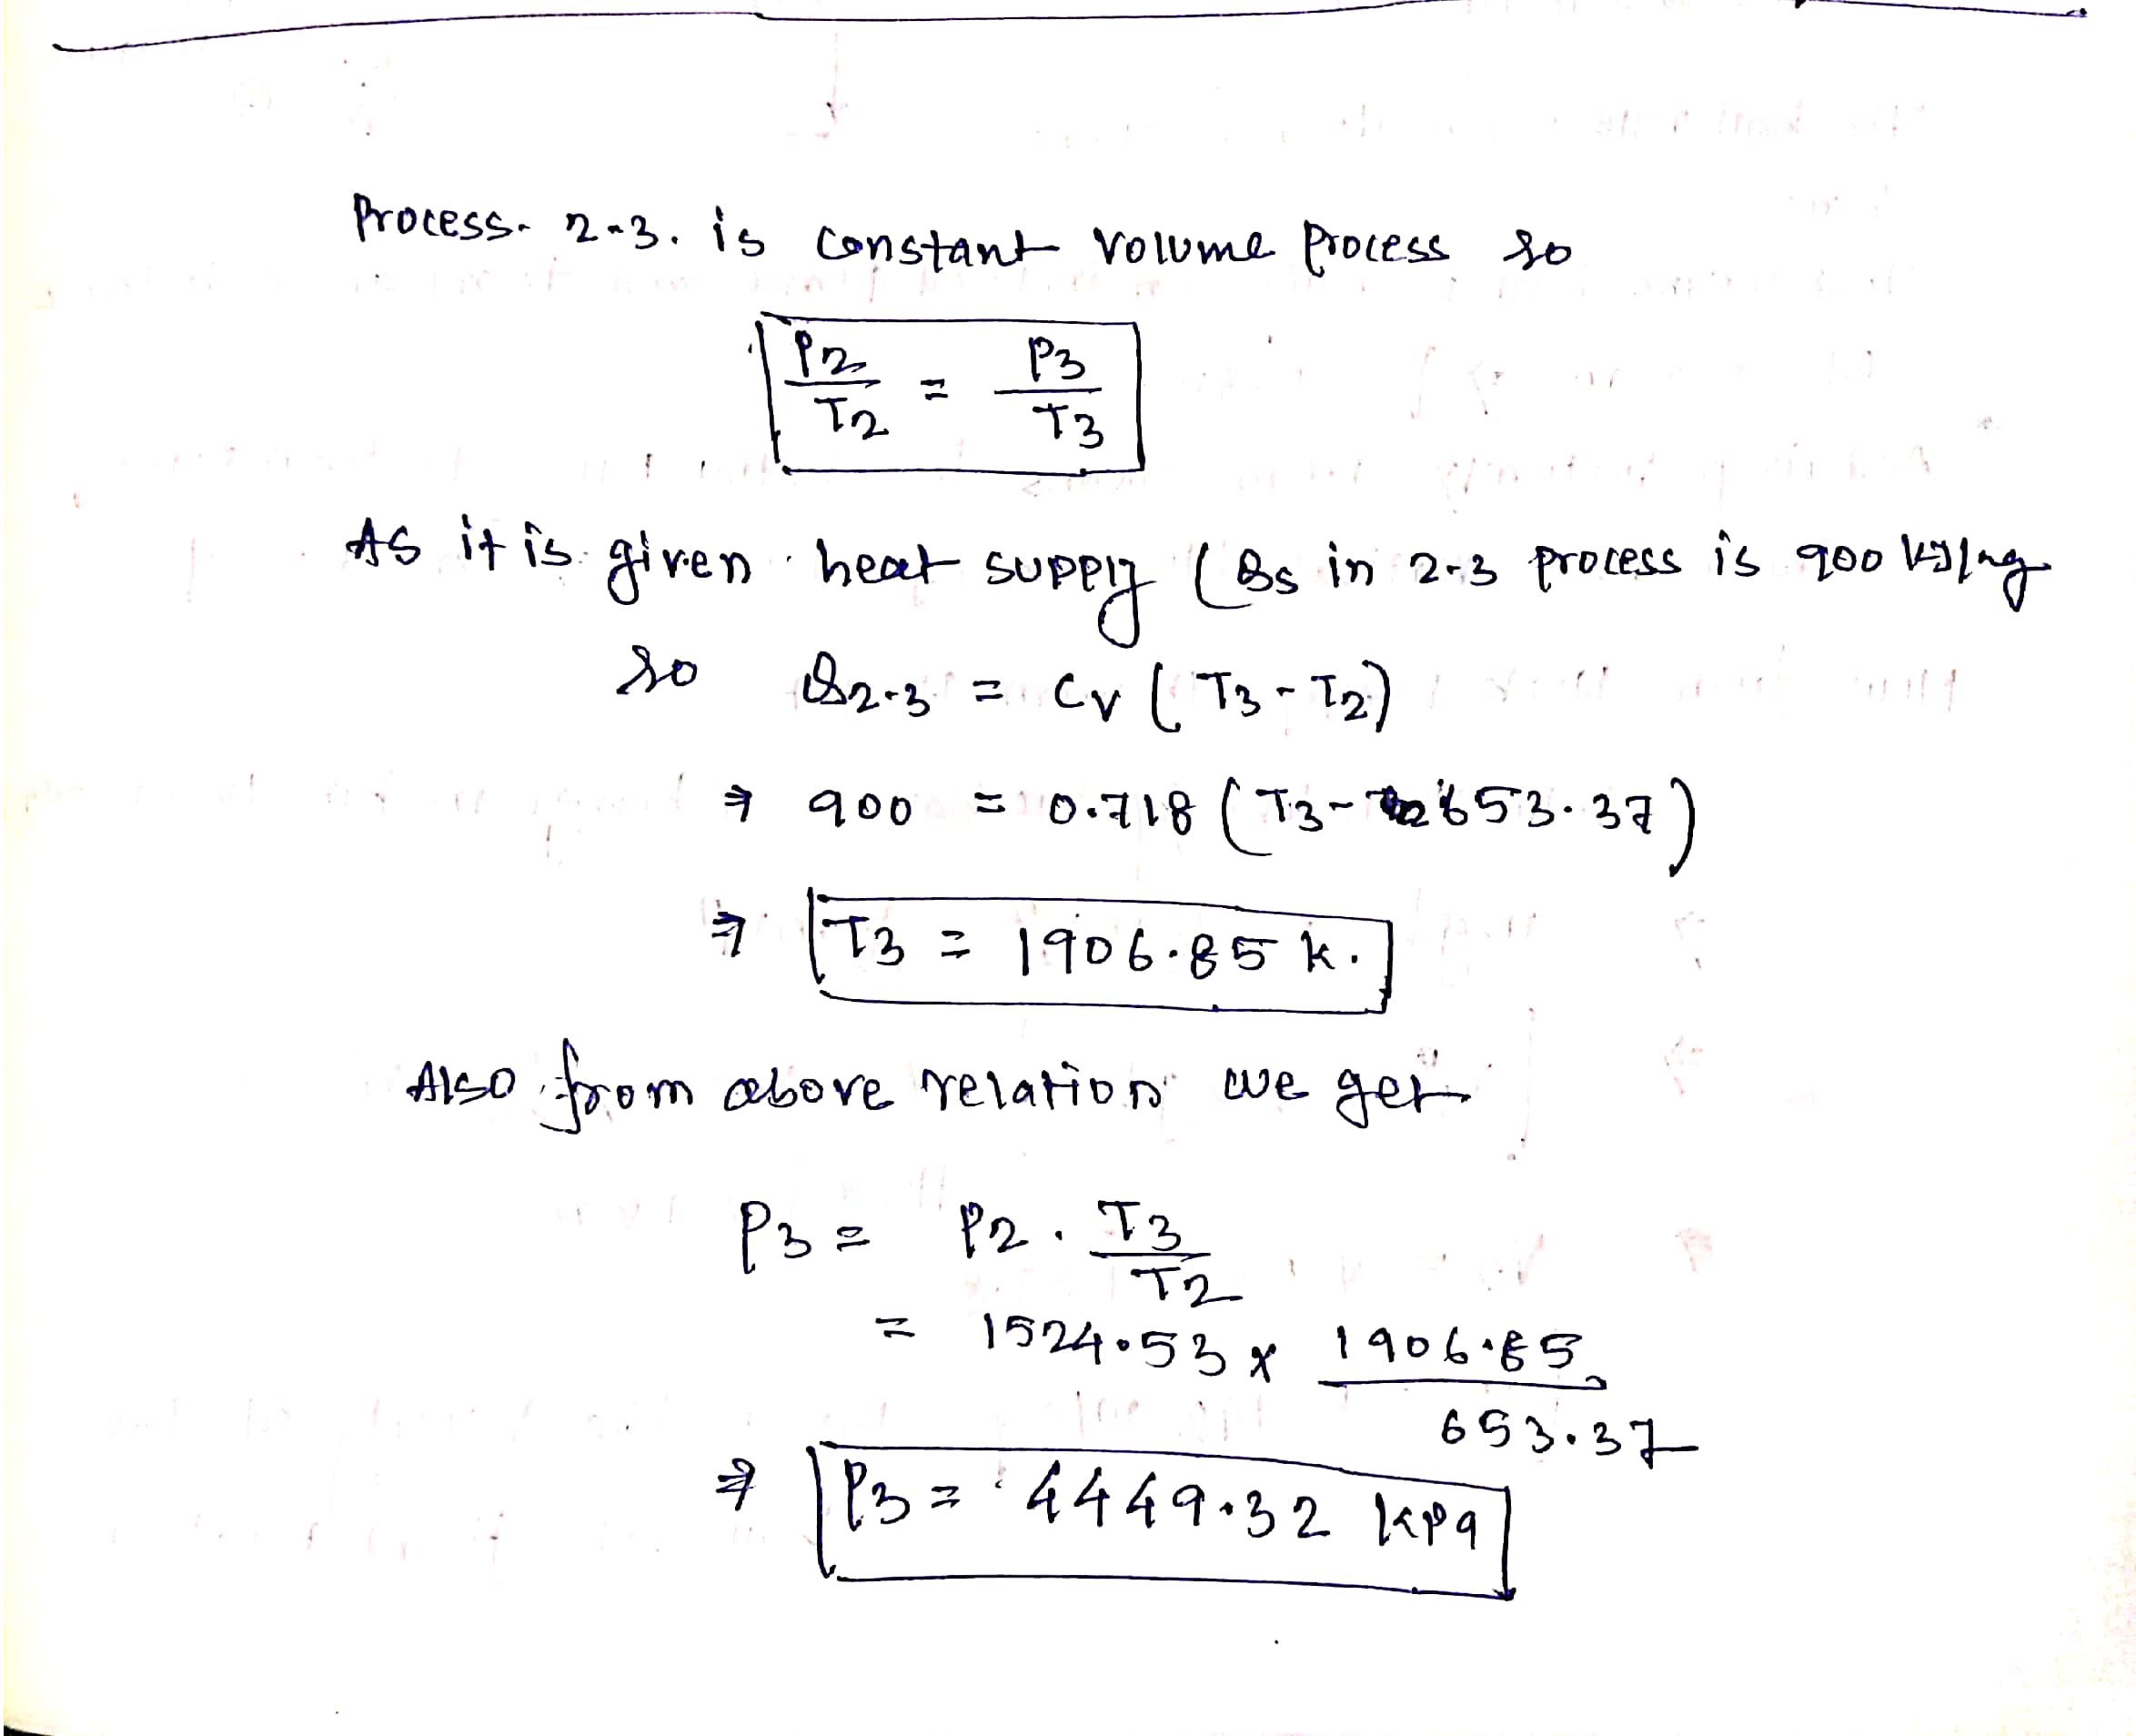 Process- 2-3. is constant volume process so
P2/T2 = P3/T3
As it is given heat supply (Qs in 2-3 process is 900 kJ/kg
so Q2-3 = Cv (T3 - T2)
⇒ 900 = 0.718 (T3 - 653.37)
⇒ T3 = 1906.85 K.
Also from above relation we get
P3 = P2 . T3/T2
= 1524.53 x 1906.85/653.37
⇒ P3 = 4449.32 kPa